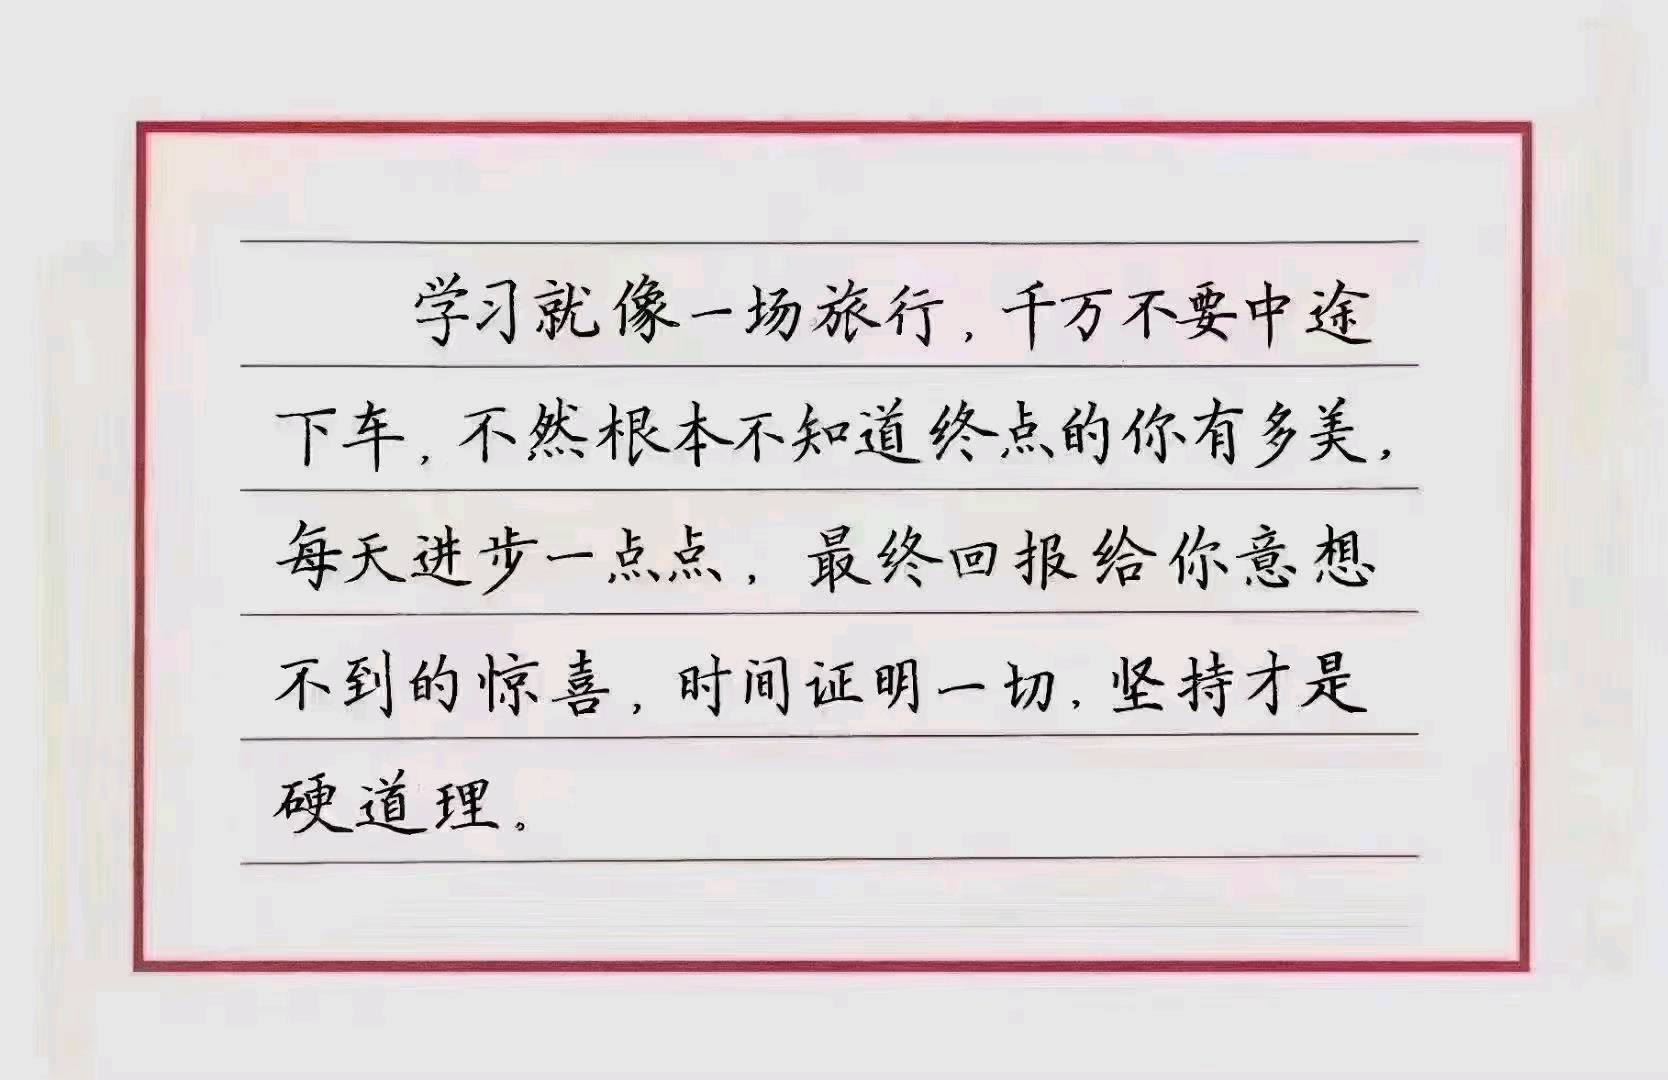 学习就像一场旅行,千万不要中途
下车,不然根本不知道终点的你有多美,
每天进步一点点,最终回报给你意想
不到的惊喜,时间证明一切,坚持才是
硬道理。